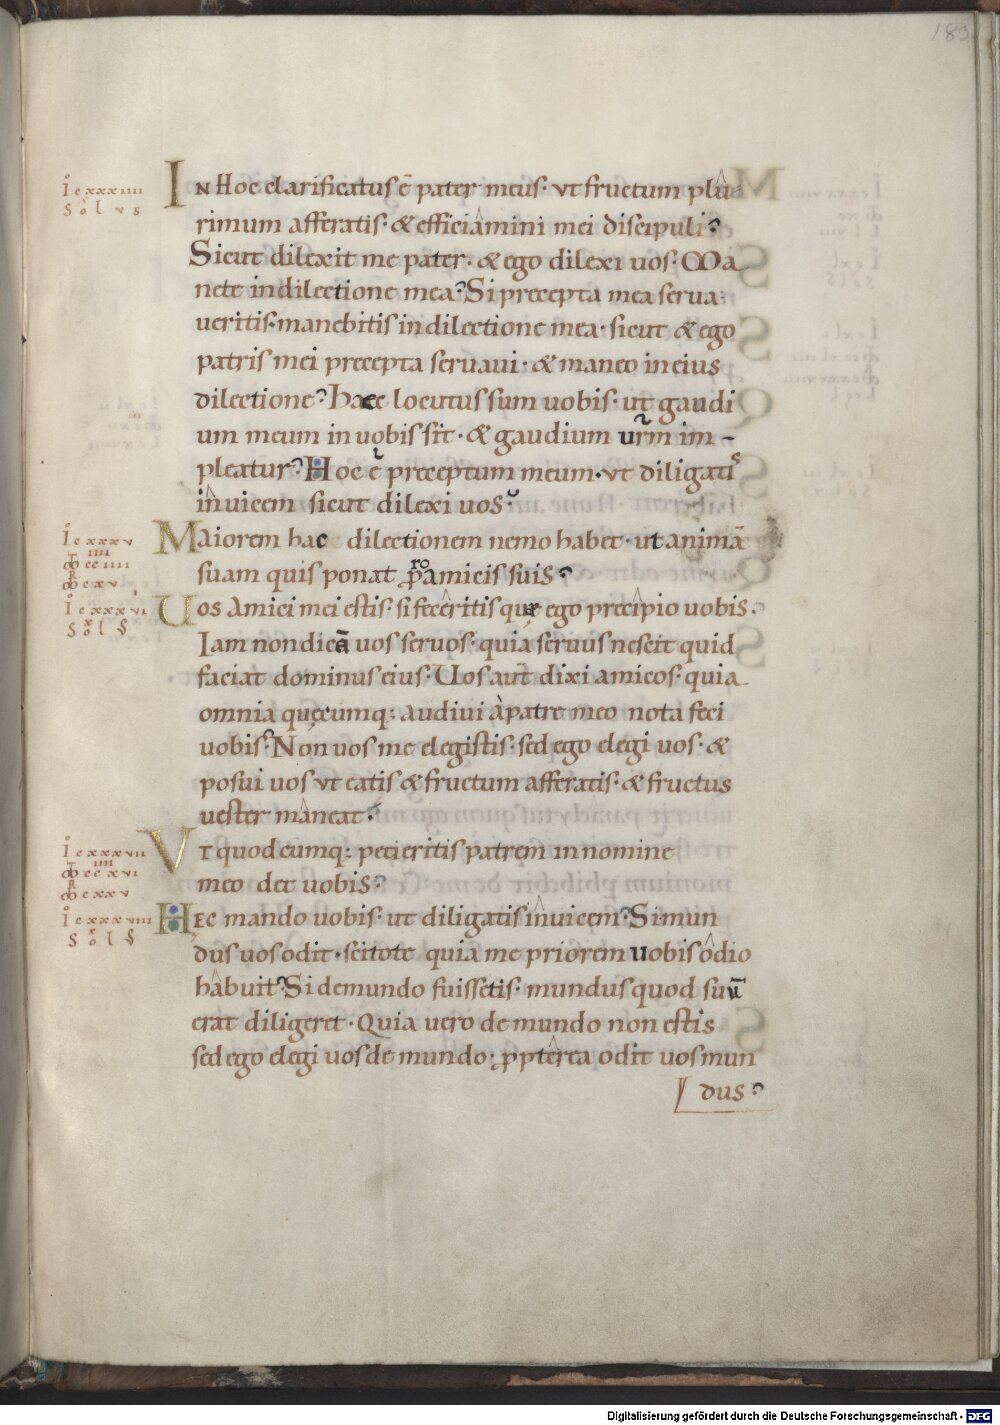 183
IN Hoc clarificatus ē pater meus· ut fructum plu
rimum afferatis· & efficiamini mei discipuli·
Sicut dilexit me pater· & ego dilexi uos· Ma
nete in dilectione mea· Si precepta mea serua
ueritis· manebitis in dilectione mea· sicut & ego
patris mei precepta seruaui· & maneo in eius
dilectione· Haec locutus sum uobis· ut gaudi
um meum in uobis sit· & gaudium urm im-
pleatur· Hoc ē preceptum meum· ut diligatis
inuicem sicut dilexi uos·
Maiorem hac dilectionem nemo habet· ut animā
suam quis ponat pro amicis suis·
Uos amici mei estis· si feceritis que ego precipio uobis·
Iam non dicā uos seruos· quia seruus nescit quid
faciat dominus eius· Uos aut̄ dixi amicos· quia
omnia quecumq: audiui a patre meo nota feci
uobis· Non uos me elegistis· sed ego elegi uos· &
posui uos ut eatis & fructum afferatis· & fructus
uester maneat·
UT quodcumq: petieritis patrem in nomine
meo det uobis·
HEC mando uobis· ut diligatis inuicem· Si mun
dus uos odit· scitote quia me priorem uobis odio
habuit· Si de mundo fuissetis· mundus quod suū
erat diligeret· Quia uero de mundo non estis
sed ego elegi uos de mundo· ppterea odit uos mun
dus·
Io cxxxiiii
Solus
Io cxxxv
IO cxxxvi
Sol S
Io cxxxvii
Io cxxxviii
Sol S
Digitalisierung gefördert durch die Deutsche Forschungsgemeinschaft - DFG